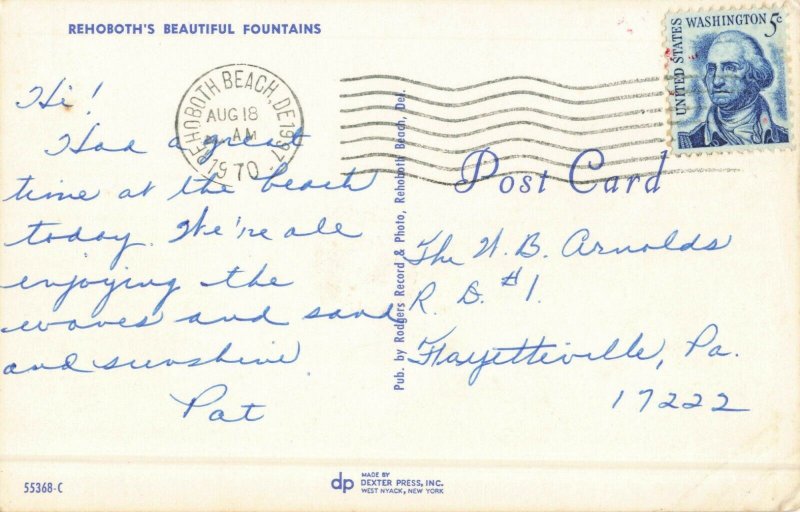 REHOBOTH'S BEAUTIFUL FOUNTAINS
REHOBOTH BEACH, DE 19971
AUG 18
AM
1970
UNITED STATES
WASHINGTON 5c
Hi!
Had a great
time at the beach
today. We're all
enjoying the
waves and sand
and sunshine.
Pat
Pub. by Rodgers Record & Photo, Rehoboth Beach, Del.
Post Card
The W. B. Arnolds
R. D. #1.
Fayetteville, Pa.
17222
55368-C
dp
MADE BY
DEXTER PRESS, INC.
WEST NYACK, NEW YORK